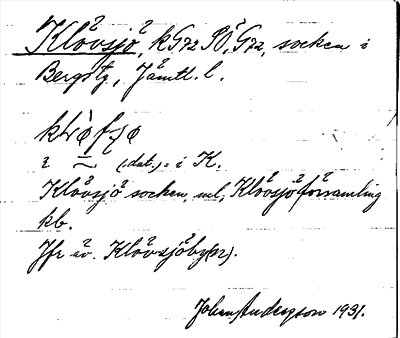 Klövsjö, kG72 PO, G72, socken i
Bergs tg, Jämtl. l.
i K.
Klövsjö socken, url. Klövsjö församling
kb.
Jfr äv. Klövsjöby(n).
Johan Anderson 1931.